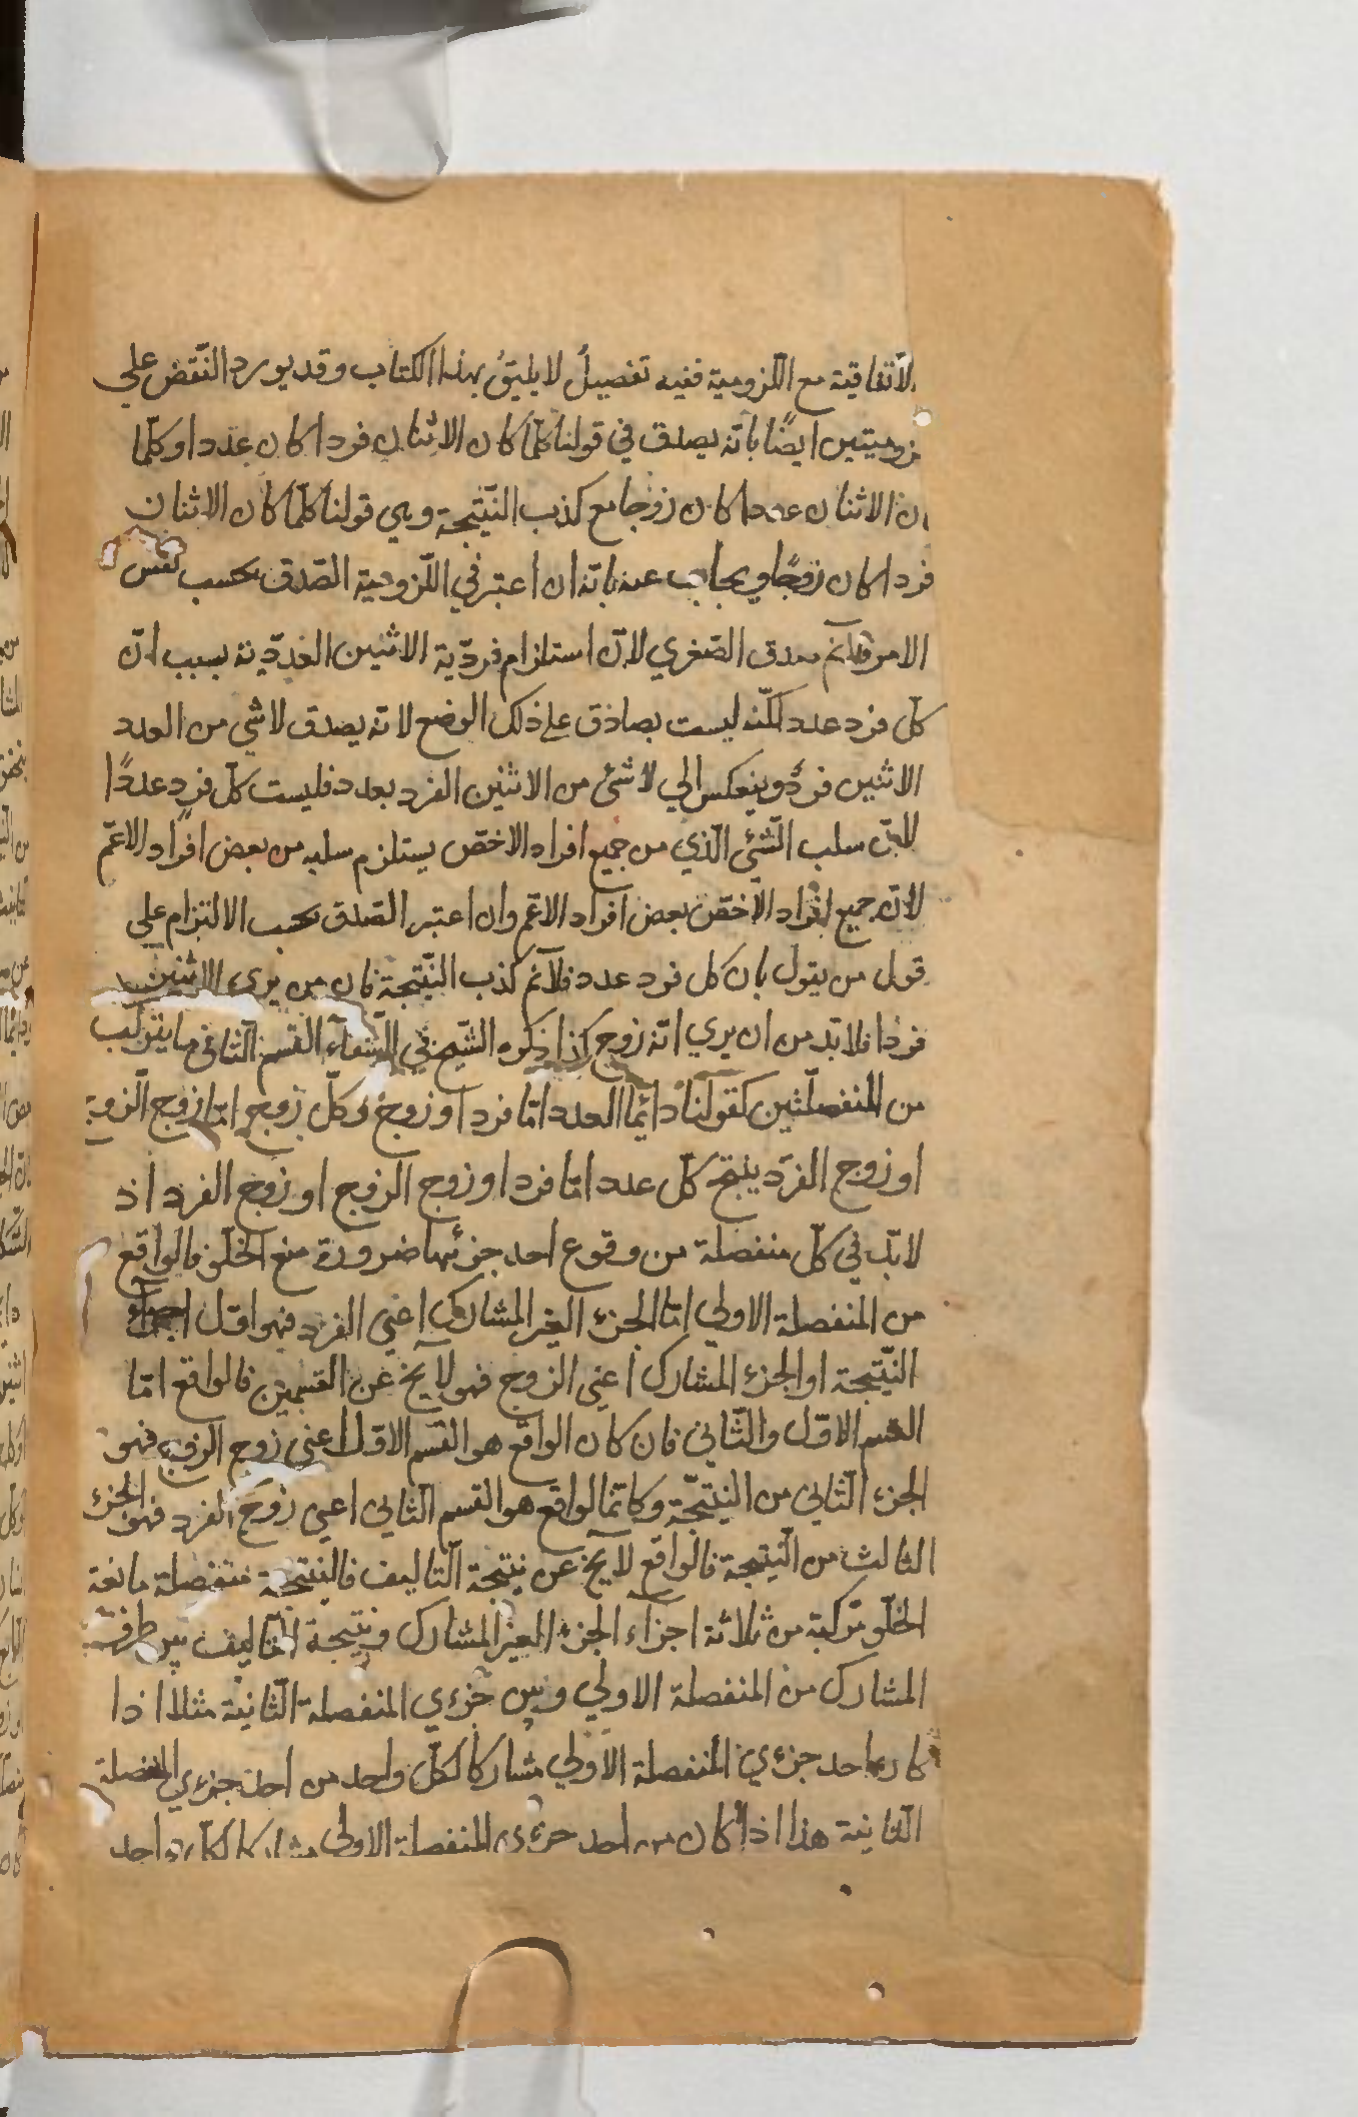 الاتفاقية مع اللزومية ففيه تفصيل لا يليق بهذا الكتاب وقد يورد النقض علي
زوميتين ايضا بانه يصدق في قولنا كلما كان الاثنان فردا كان عددا وكلما
ان الاثنان عددا كان زوجا مع كذب النتيجة وهي قولنا كلما كان الاثنان
فردا كان زوجا ويجاب عنه بانه ان اعتبر في اللزومية الصدق بحسب نفس
الامر فلانم صدق الصغري لان استلزام فردية الاثنين العددية بسبب ان
كل فرد عدد لكنه ليست بصادق علي ذلك الوضع لانه يصدق لا شي من العدد
الاثنين فرد وينعكس الي لا شئ من الاثنين الفرد بعدد فليست كل فرد عددا
لان سلب الشئ الذي من جميع افراد الاخص يستلزم سلبه من بعض افراد الاعم
لان جميع افراد الاخص بعض افراد الاعم وان اعتبر الصدق بحسب الالتزام علي
قول من يقول بان كل فرد عدد فلانم كذب النتيجة فان من يري الاثنين
فردا فلا بد من ان يري انه زوج كذا ذكره الشيخ في الشفاء القسم الثاني ما يتركب
من المنفصلتين كقولنا دائما العدد اما فرد او زوج وكل زوج اما زوج الزوج
او زوج الفرد ينتج كل عدد اما فرد او زوج الزوج او زوج الفرد اذ
لابد في كل منفصلة من وقوع احد جزئها ضرورة منع الخلو فالواقع
من المنفصلة الاولي اما الجزء الغير المشارك اعني الفرد فهو اول اجزاء
النتيجة او الجزء المشارك اعني الزوج فهو لا يخ عن القسمين فالواقع اما
القسم الاول والثاني فان كان الواقع هو القسم الاول اعني زوج الزوج فهو
الجزء الثاني من النتيجة وكانما لواقع هو القسم الثاني اعني زوج الفرد فهو الجزء
الثالث من النتيجة فالواقع لا يخ عن نتيجة التاليف فالنتيجة منفصلة مانعة
الخلو مركبة من ثلاثة اجزاء الجزء الغير المشارك ونتيجة التاليف بين طرف
المشارك من المنفصلة الاولي وبين جزءي المنفصلة الثانية مثلا اذا
كان احد جزءي المنفصلة الاولي مشاركا لكل واحد من احد جزءي المنفصلة
الثانية هذا اذا كان من احد جزءي المنفصلة الاولي مشاركا لكل واحد